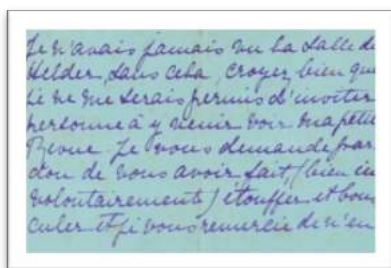 Je n'avais jamais vu la Salle du
Helder, sans cela, croyez bien que
je ne me serais permis d'inviter
personne à y venir voir ma petite
Revue. Je vous demande par
don de vous avoir fait (bien in
volontairement) étouffer et bous
culer et je vous remercie de n'en